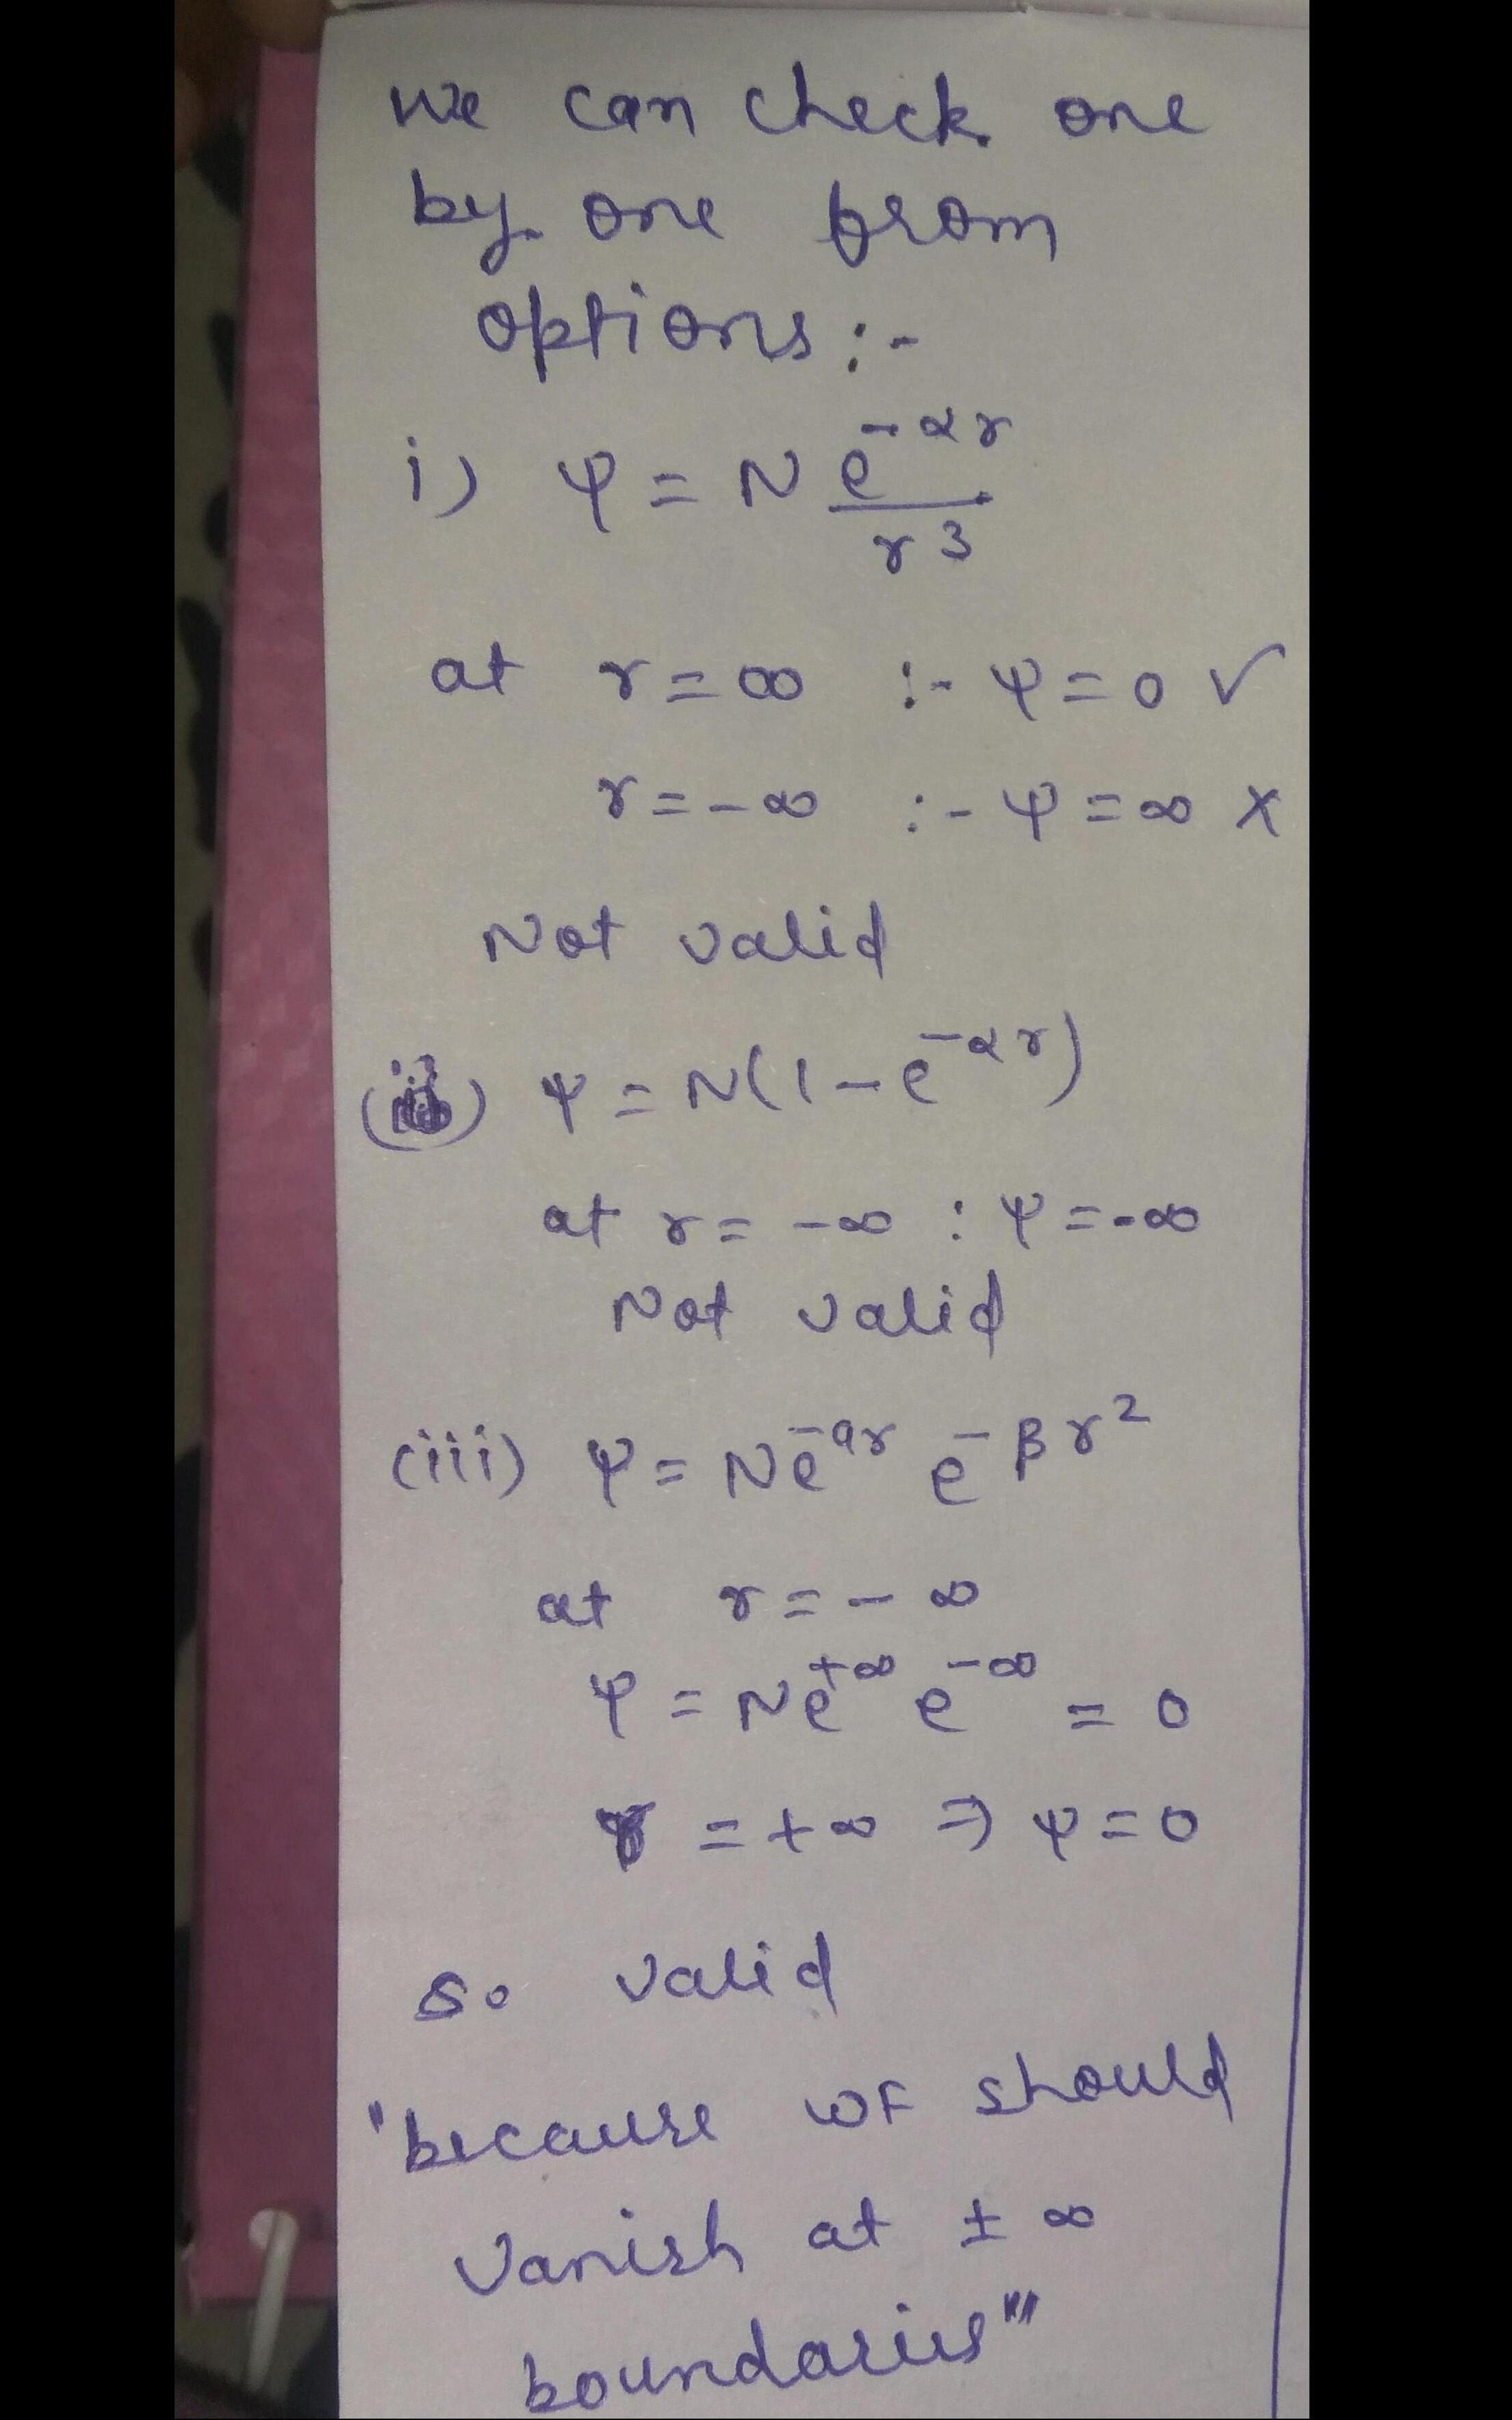 we can check one
by one from
options :-
i) ψ = N e^-αr / r^3
at r = ∞ :- ψ = 0 ✓
r = - ∞ :- ψ = ∞ ×
Not valid
(ii) ψ = N(1 - e^-αr)
at r = - ∞ : ψ = - ∞
Not valid
(iii) ψ = N e^-αr e^-βr^2
at r = - ∞
ψ = N e^+∞ e^-∞ = 0
r = + ∞ ⇒ ψ = 0
so valid
"because WF should
vanish at ± ∞
boundaries"